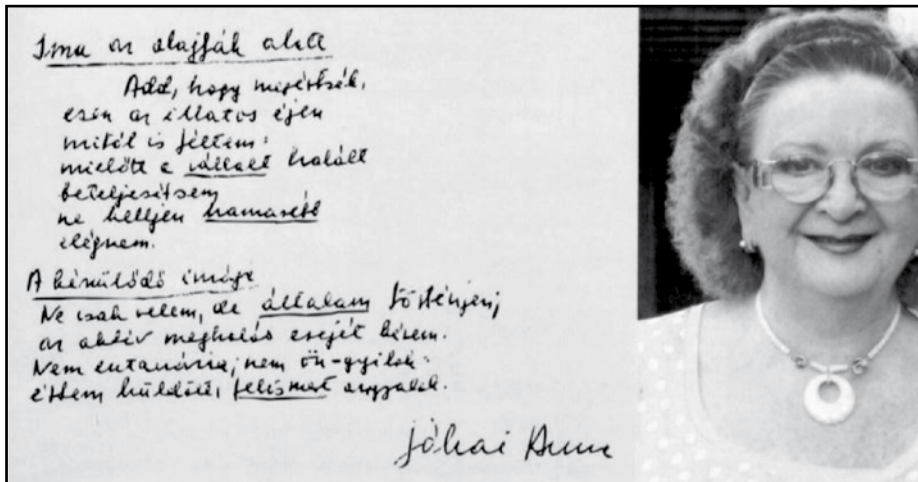 Ima az olajfák alatt
Add, hogy megértsék,
ezen az illatos éjen
mitől is féltem:
mielőtt a vállalt halált
beteljesítsem
ne kelljen hamarébb
elégnem.
A készülődő imája
Ne csak velem, de általam történjenj
az aktív meghalás erejét kérem.
Nem eutanázia, nem ön-gyilok:
értem küldött, felismert angyalok.
Jókai Anna